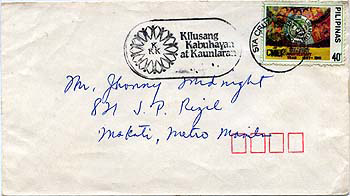 Kilusang
Kabuhayan
at Kaunlaran
KKK
STA CRUZ
PILIPINAS
40
Mr. Jhonny Midnight
821 J. P. Rizil
Makati, Metro Manila